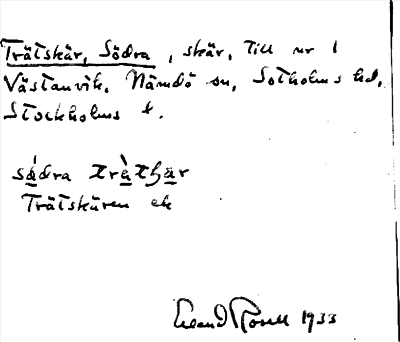 Trätskär, Södra, skär, till nr 1
Västanvik, Nämdö sn, Sotholms hd,
Stockholms l.
sá̱dra trà̱tʃä̱r
Trätskären ek
1933